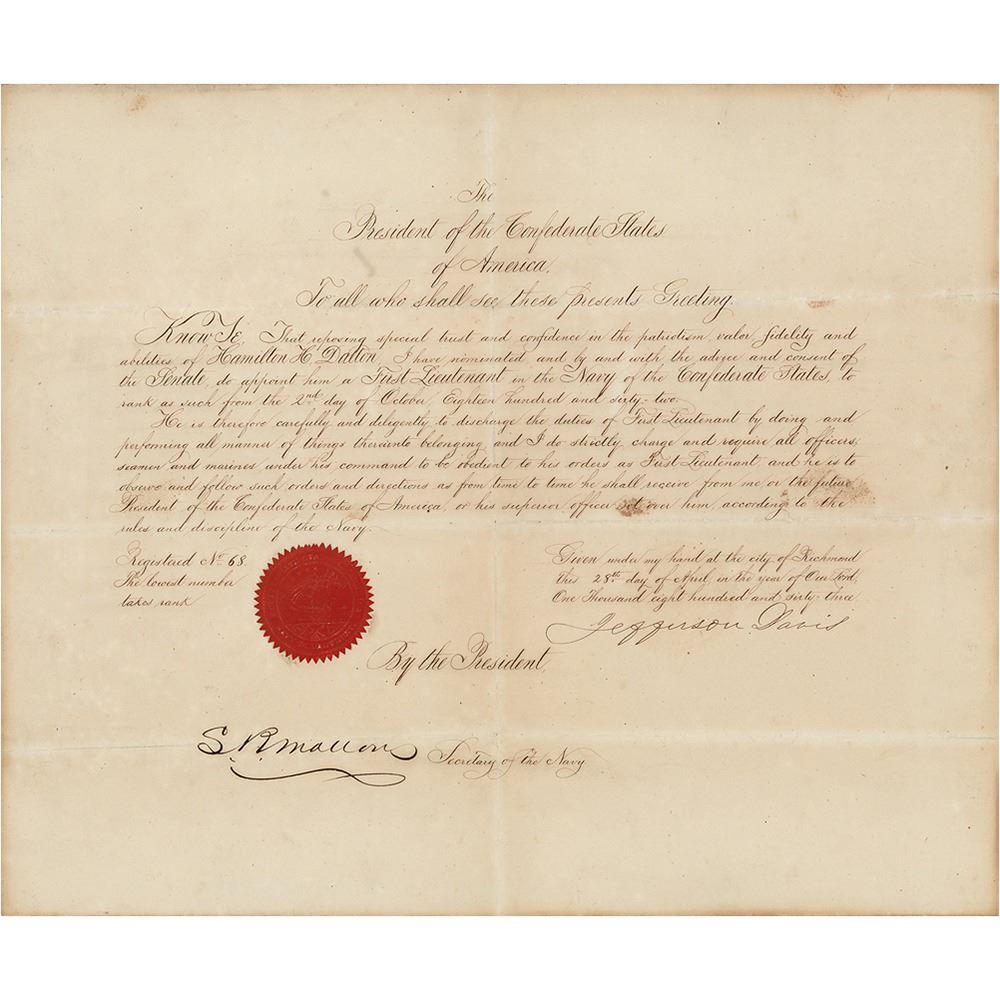 The
President of the Confederate States
of America.
To all who shall see these presents Greeting.
Know Ye, That reposing special trust and confidence in the patriotism, valor, fidelity and
abilities of Hamilton H. Dalton, I have nominated and by and with the advice and consent of
the Senate, do appoint him a First Lieutenant in the Navy of the Confederate States, to
rank as such from the 2nd day of October, Eighteen hundred and sixty-two.
He is therefore carefully and deligently to discharge the duties of First Lieutenant by doing and
performing all manner of things thereinto belonging, and I do strictly charge and require all officers,
seamen and marines under his command to be obedient to his orders as First Lieutenant and he is to
observe and follow such orders and directions as from time to time he shall receive from me or the future
President of the Confederate States of America, or his superior officer set over him, according to the
rules and discipline of the Navy.
Registered No. 68.
The lowest number
takes rank
Given under my hand at the city of Richmond
this 28th day of April, in the year of Our Lord,
One Thousand eight hundred and sixty-three.
Jefferson Davis
By the President,
S. R. Mallory
Secretary of the Navy